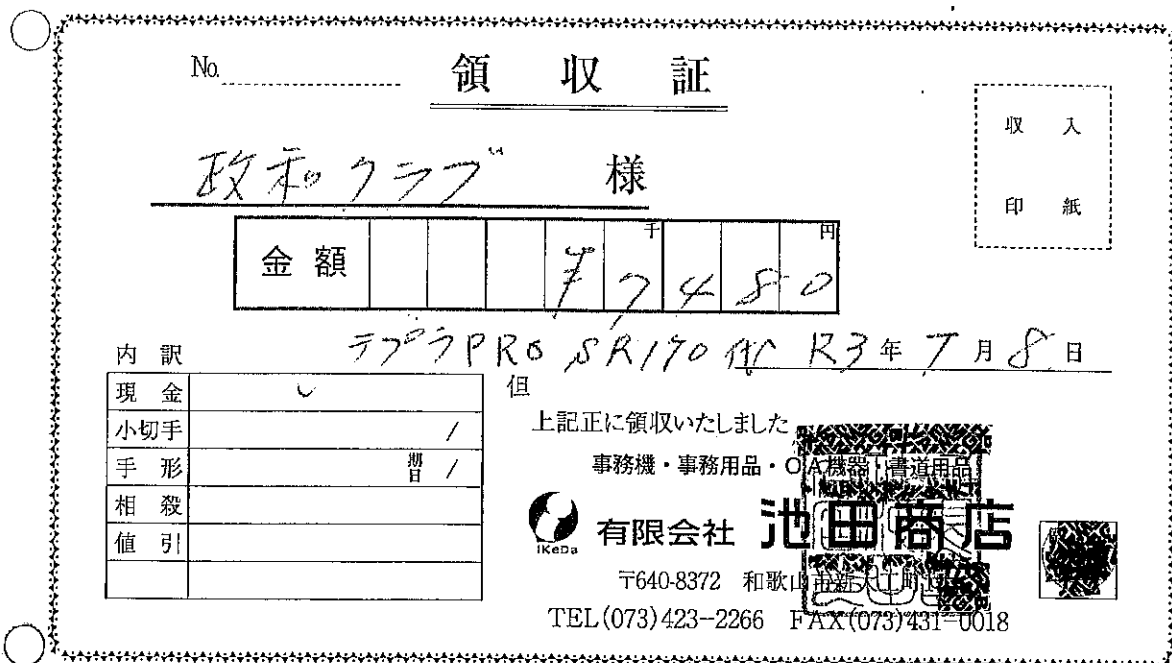 No.
領収証
収入
印紙
政和クラブ 様
金額 ¥7480
千 円
テプラPRO SR170代 R3年7月8日
内訳
但
現金 レ
小切手 /
手形 期日 /
相殺
値引
上記正に領収いたしました
事務機・事務用品・OA機器・書道用品
iKeDa
有限会社 池田商店
〒640-8372 和歌山市新大工町
TEL(073)423-2266 FAX(073)431-0018